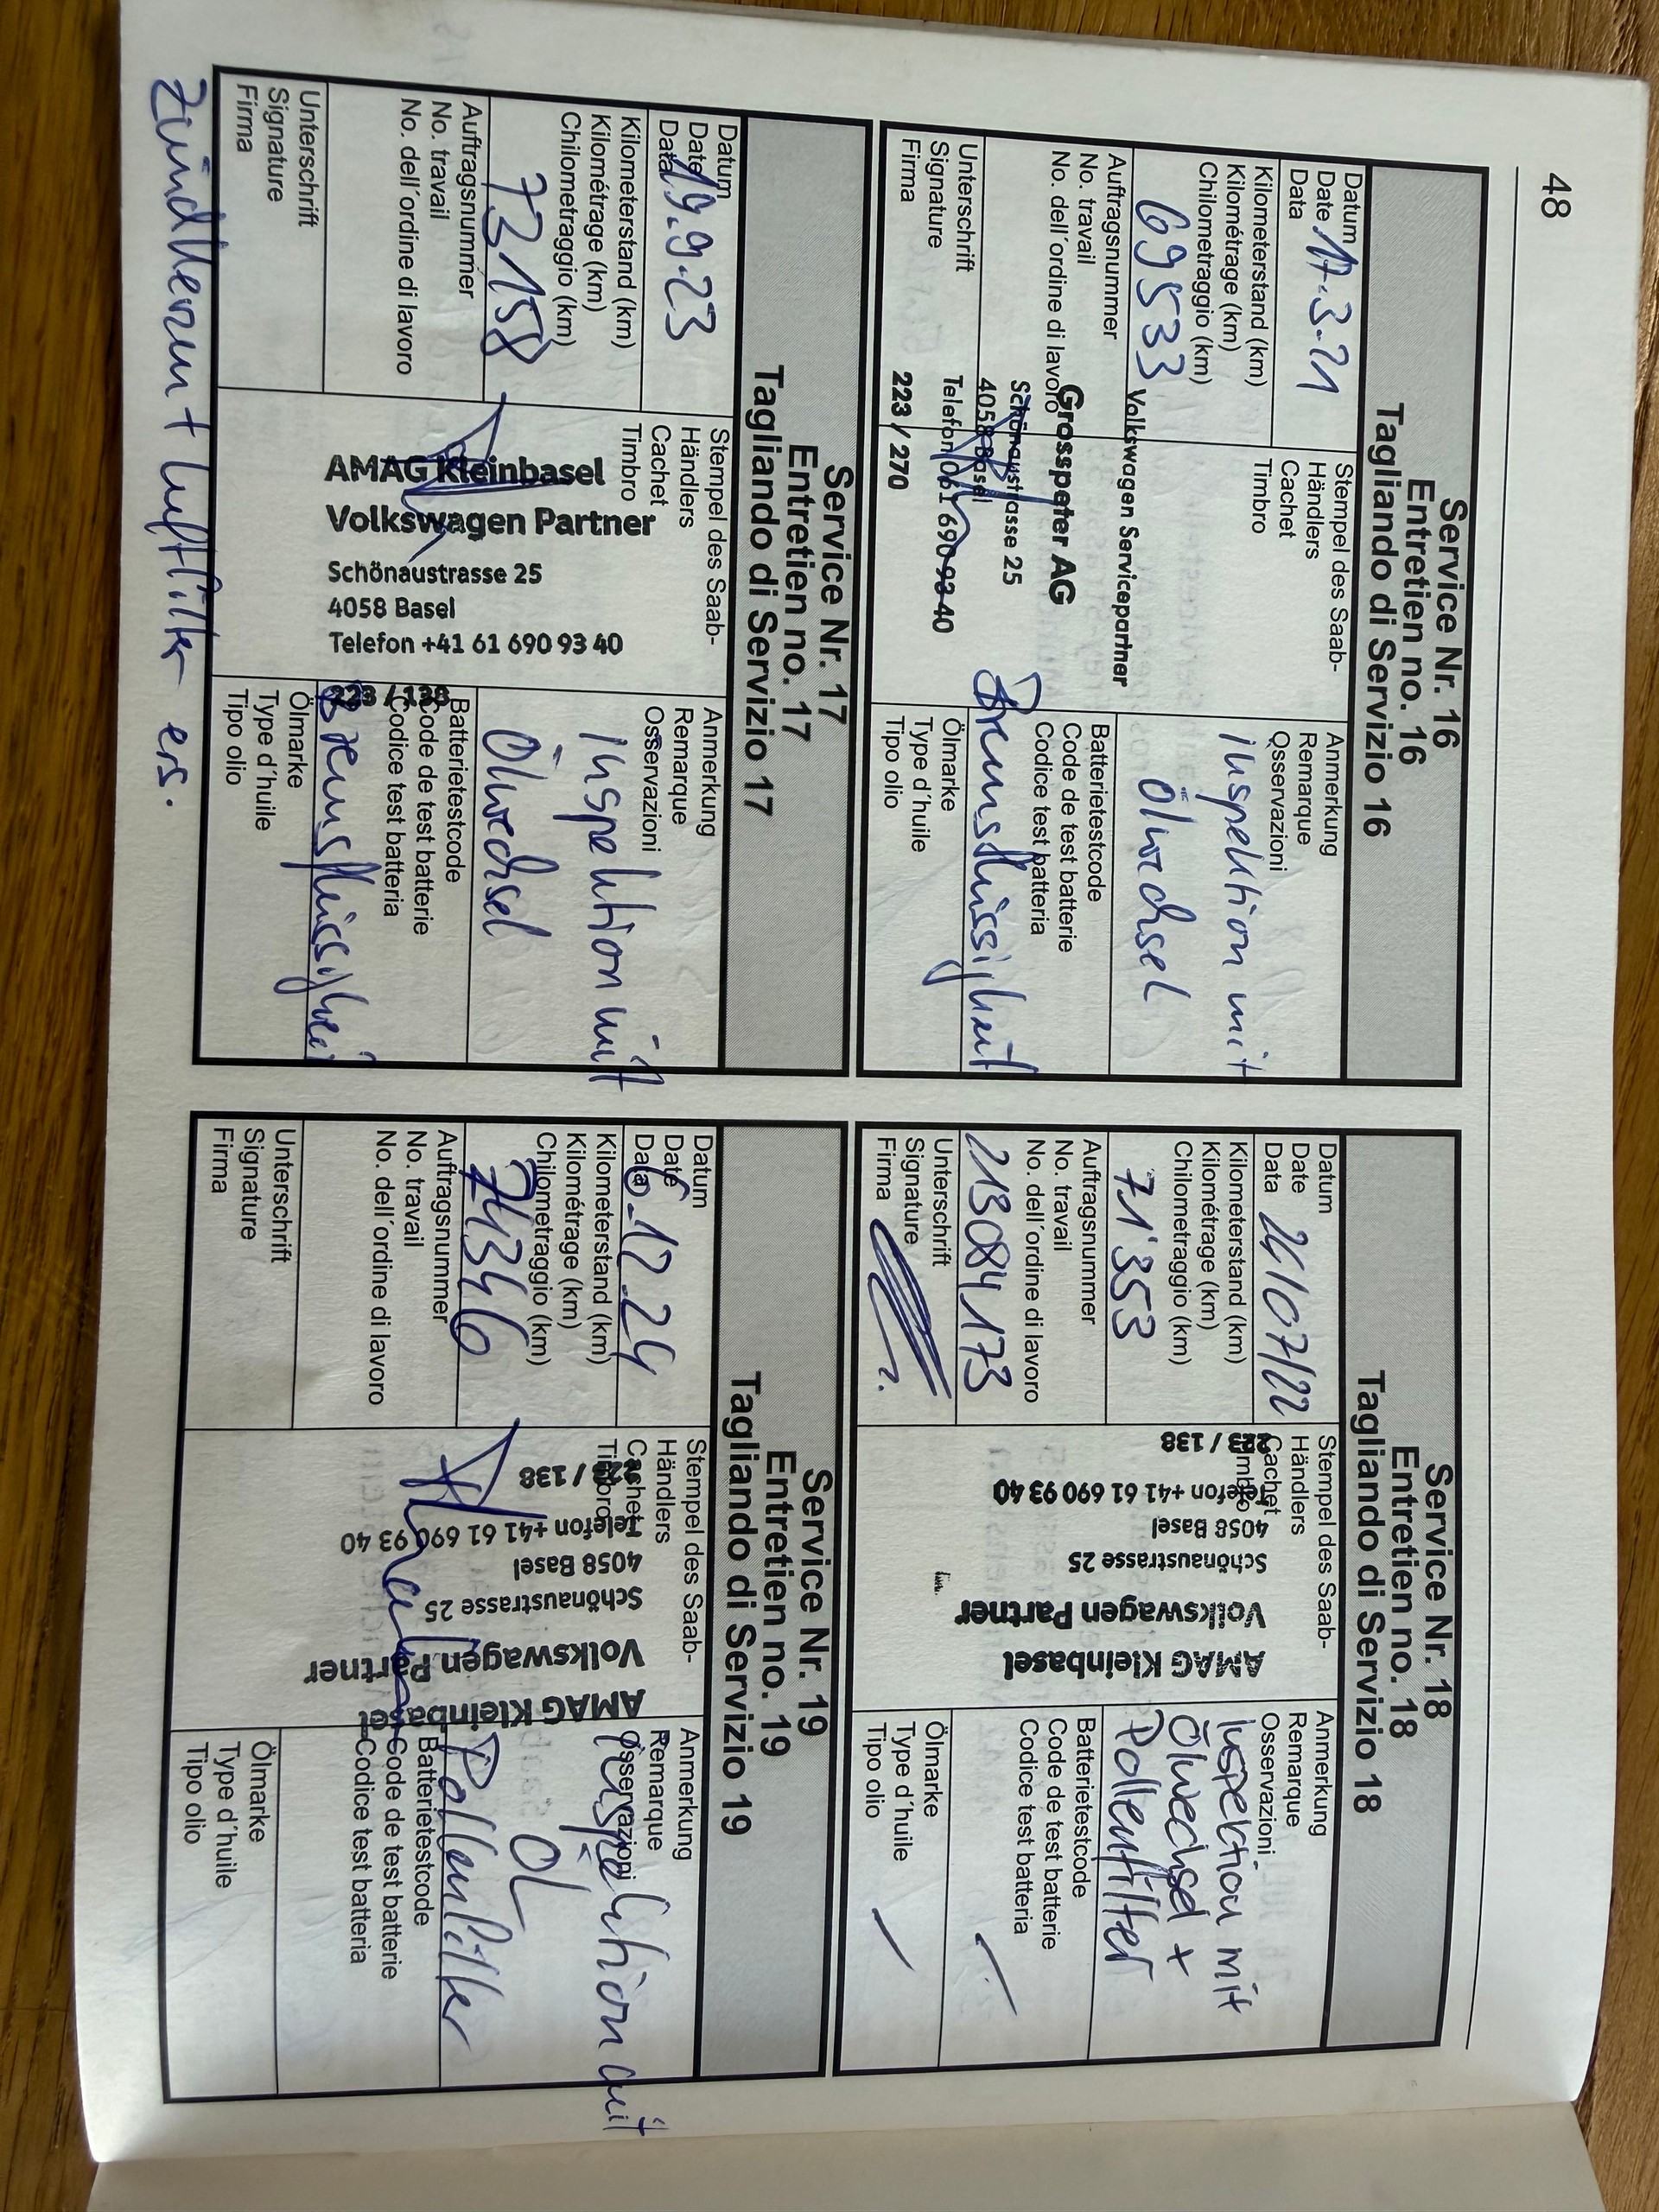 48
Service Nr. 16
Entretien no. 16
Tagliando di Servizio 16
Datum
Date
Data
17.3.21
Kilometerstand (km)
Kilométrage (km)
Chilometraggio (km)
69533
Auftragsnummer
No. travail
No. dell´ordine di lavoro
Unterschrift
Signature
Firma
Stempel des Saab-
Händlers
Cachet
Timbro
Volkswagen Servicepartner
Grosspeter AG
Schönaustrasse 25
4058 Basel
Telefon 061 690 93 40
223 / 270
Anmerkung
Remarque
Osservazioni
Inspektion mit
Ölwechsel
Batterietestcode
Code de test batterie
Codice test batteria
Bremsflüssigkeit
Ölmarke
Type d´huile
Tipo olio
Service Nr. 18
Entretien no. 18
Tagliando di Servizio 18
Datum
Date
Data
21/07/22
Kilometerstand (km)
Kilométrage (km)
Chilometraggio (km)
71'353
Auftragsnummer
No. travail
No. dell´ordine di lavoro
213084173
Unterschrift
Signature
Firma
Stempel des Saab-
Händlers
Cachet
Timbro
AMAG Kleinbasel
Volkswagen Partner
Schönaustrasse 25
4058 Basel
Telefon +41 61 690 93 40
223 / 138
Anmerkung
Remarque
Osservazioni
Inspektion mit
Ölwechsel +
Pollenfilter
Batterietestcode
Code de test batterie
Codice test batteria
Ölmarke
Type d´huile
Tipo olio
Service Nr. 17
Entretien no. 17
Tagliando di Servizio 17
Datum
Date
Data
19.9.23
Kilometerstand (km)
Kilométrage (km)
Chilometraggio (km)
73158
Auftragsnummer
No. travail
No. dell´ordine di lavoro
Unterschrift
Signature
Firma
Stempel des Saab-
Händlers
Cachet
Timbro
AMAG Kleinbasel
Volkswagen Partner
Schönaustrasse 25
4058 Basel
Telefon +41 61 690 93 40
223 / 138
Anmerkung
Remarque
Osservazioni
Inspektion mit
Ölwechsel
Batterietestcode
Code de test batterie
Codice test batteria
Bremsflüssigkei
Ölmarke
Type d´huile
Tipo olio
Zündkerzen + Luftfilter ers.
Service Nr. 19
Entretien no. 19
Tagliando di Servizio 19
Datum
Date
Data
6.12.24
Kilometerstand (km)
Kilométrage (km)
Chilometraggio (km)
74346
Auftragsnummer
No. travail
No. dell´ordine di lavoro
Unterschrift
Signature
Firma
Stempel des Saab-
Händlers
Cachet
Timbro
AMAG Kleinbasel
Volkswagen Partner
Schönaustrasse 25
4058 Basel
Telefon +41 61 690 93 40
223 / 138
Anmerkung
Remarque
Osservazioni
Inspektion mit
ÖL
Pollenfilter
Batterietestcode
Code de test batterie
Codice test batteria
Ölmarke
Type d´huile
Tipo olio